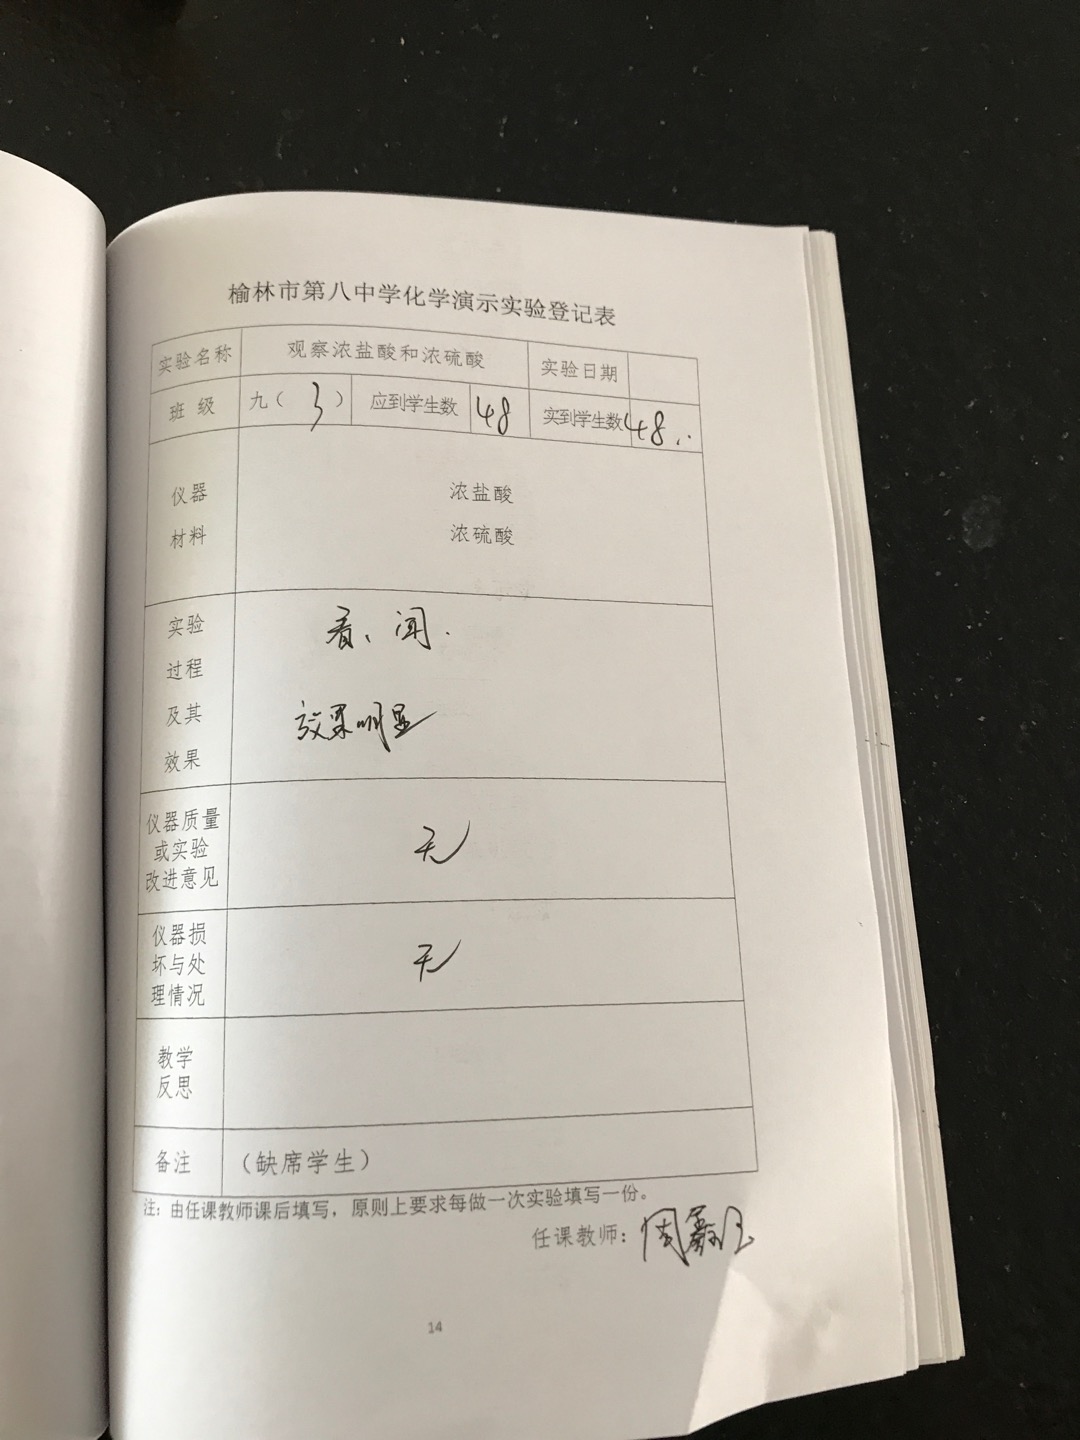 榆林市第八中学化学演示实验登记表
实验名称 观察浓盐酸和浓硫酸 实验日期
班 级 九（ 3 ） 应到学生数 48 实到学生数 48
仪器
材料
浓盐酸
浓硫酸
实验
过程
及其
效果
看、闻.
效果明显
仪器质量
或实验
改进意见
无
仪器损
坏与处
理情况
无
教学
反思
备注 （缺席学生）
注：由任课教师课后填写，原则上要求每做一次实验填写一份。
任课教师：周
14